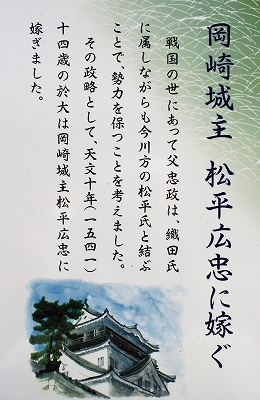 岡崎城主 松平広忠に嫁ぐ
戦国の世にあって父忠政は、織田氏
に属しながらも今川方の松平氏と結ぶ
ことで、勢力を保つことを考えました。
その政略として、天文十年(一五四一)
十四歳の於大は岡崎城主松平広忠に
嫁ぎました。